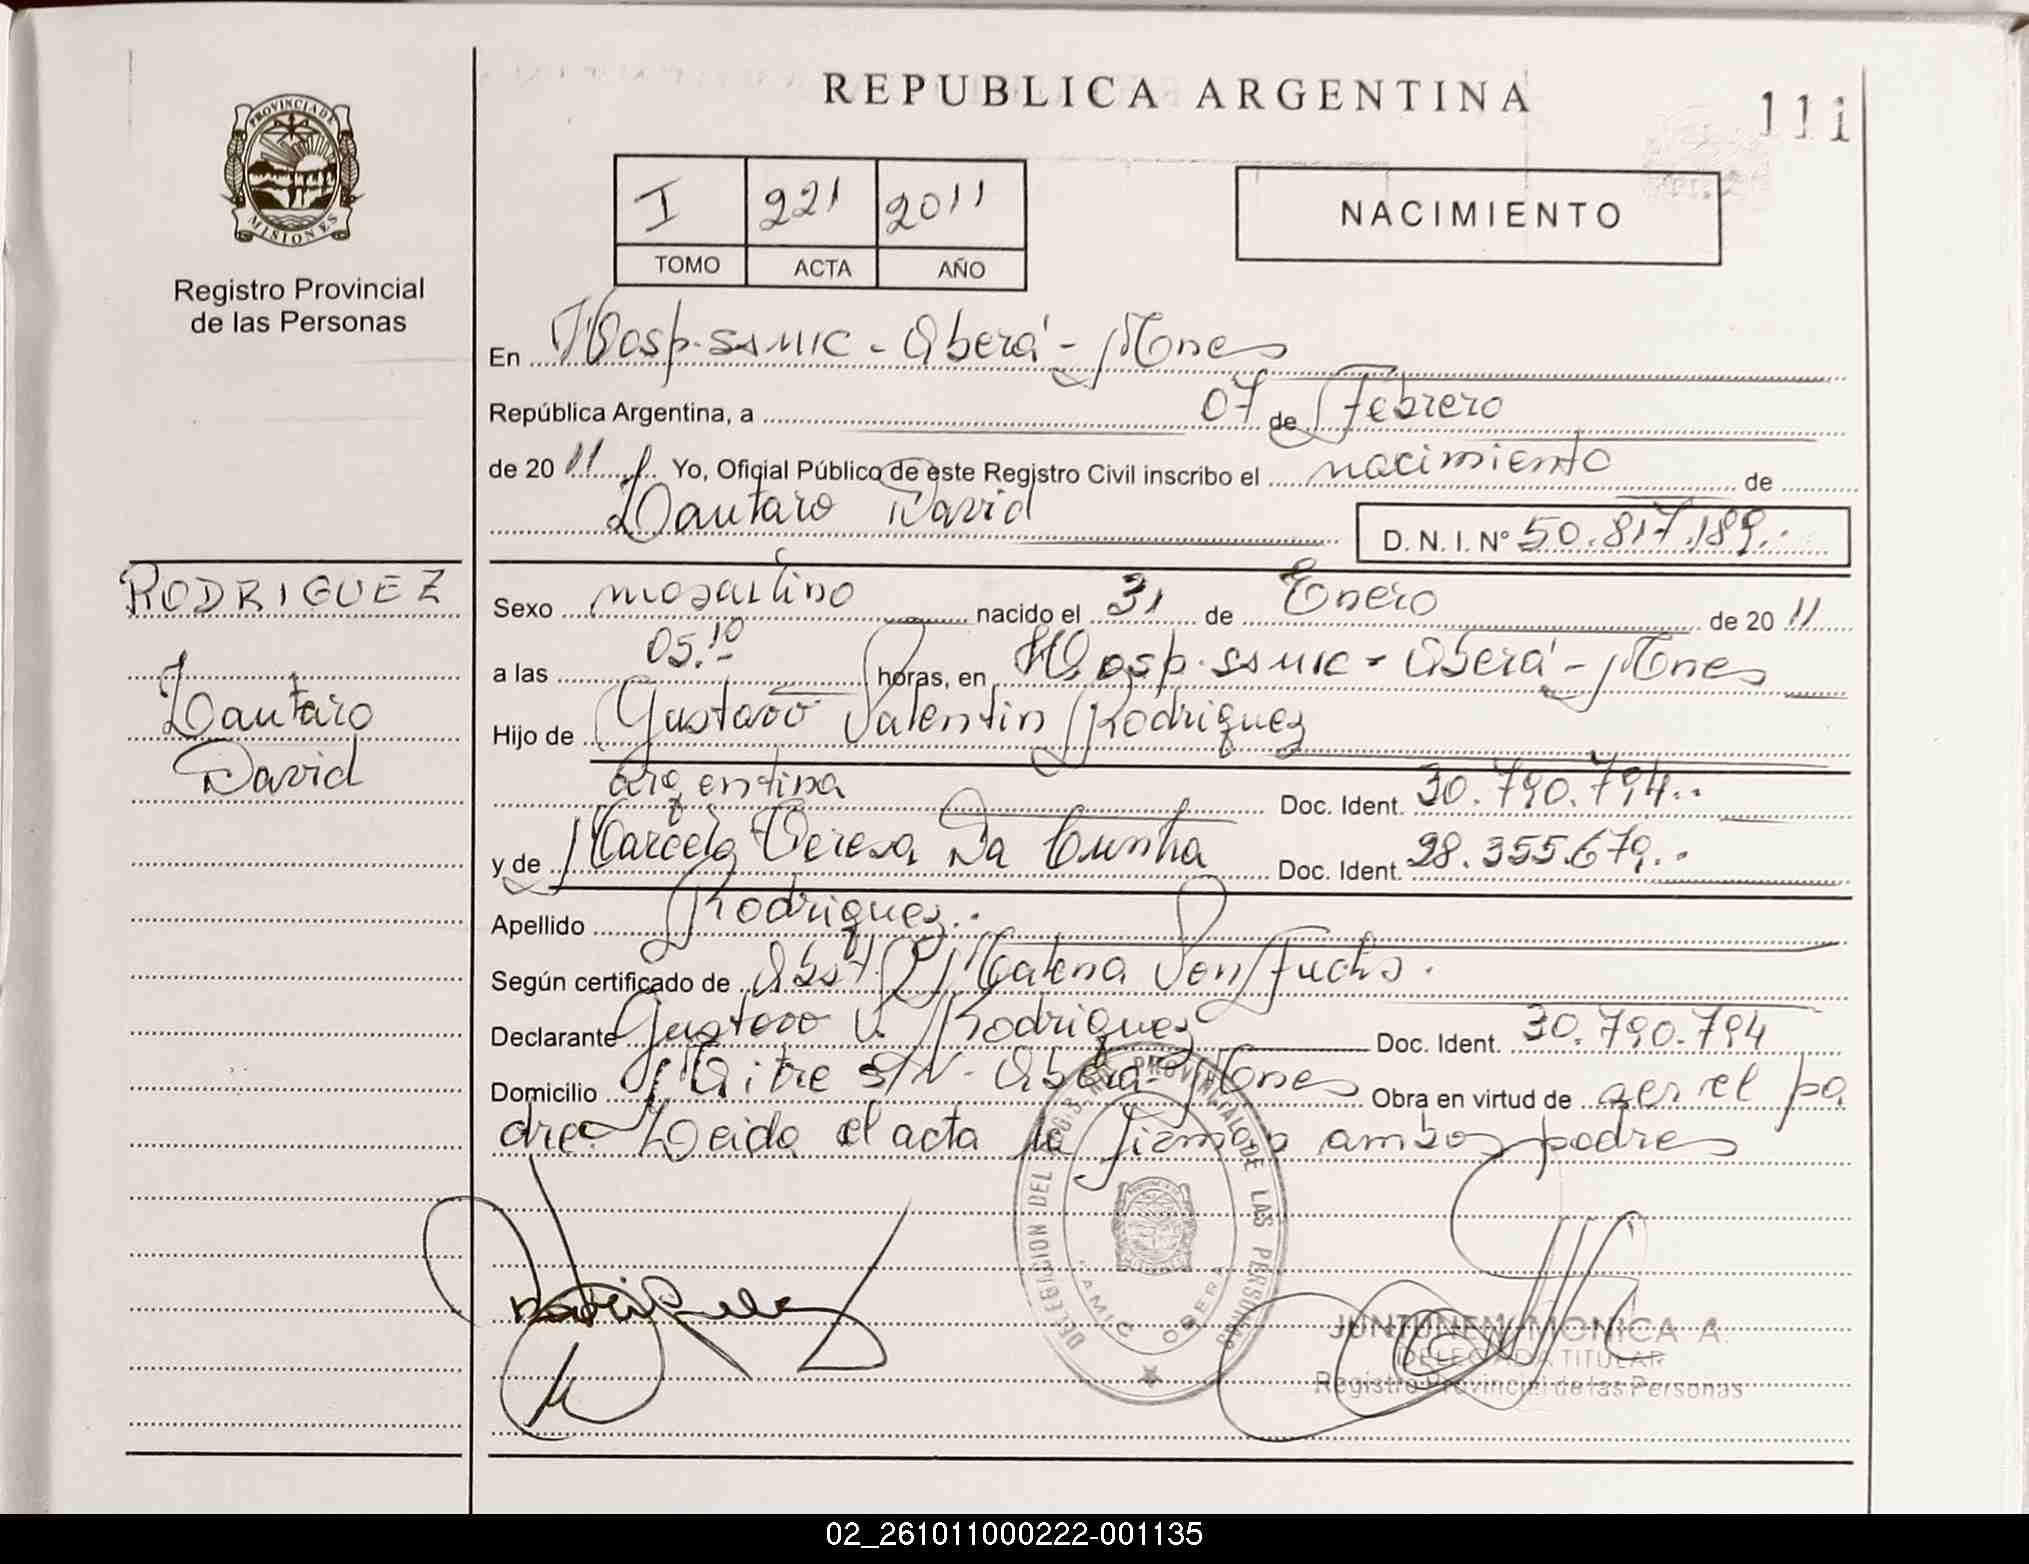 REPUBLICA ARGENTINA
111
PROVINCIA DE MISIONES
Registro Provincial
de las Personas
I 221 2011
TOMO ACTA AÑO
NACIMIENTO
En Hosp. SAMIC - Oberá - Mnes
República Argentina, a 07 de Febrero
de 2011 Yo, Oficial Público de este Registro Civil inscribo el nacimiento de
Lautaro David D. N. I. Nº 50.817.189..
RODRIGUEZ
Lautaro
David
Sexo masculino nacido el 31 de Enero de 2011
a las 05.10 horas, en Hosp. SAMIC - Oberá - Mnes
Hijo de Gustavo Valentin Rodriguez
argentina Doc. Ident. 30.790.794..
y de Marcela Teresa Da Cunha Doc. Ident. 28.355.679..
Apellido Rodriguez.
Según certificado de Obst. Malena Von Fuchs.
Declarante Gustavo V. Rodriguez Doc. Ident. 30.790.794
Domicilio Mitre S/N - Oberá - Mnes Obra en virtud de ser el pa
dre. Leida el acta la firman ambos padres
DELEGACION DEL REGISTRO PROVINCIAL DE LAS PERSONAS
SAMIC OBERA
JUNTUNEN MONICA A.
DELEGADA TITULAR
Registro Provincial de las Personas
02_261011000222-001135